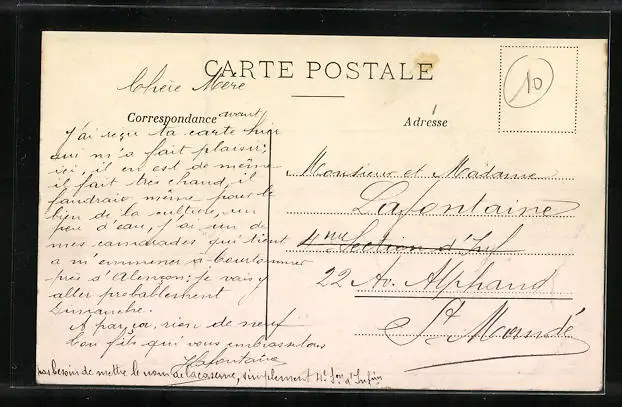 CARTE POSTALE
10
Chère Mère
Correspondance
Adresse
J'ai reçu ta carte hier
qui m'a fait plaisir;
ici, il en est de même
il fait très chaud, il
faudrait même pour le
bien de la culture, un
peu d'eau, j'ai un de
mes camarades qui tient
a m'emmener à Courtomer
près d'Alençon; je vais y
aller probablement
Dimanche.
A part ça, rien de neuf
Ton fils qui vous embrasse
Lafontaine
pas besoin de mettre le nom de la caserne, simplement 4e Son d'Infie
Monsieur et Madame
Lafontaine
4me Section d'Inf
22 Av. Alphand
St Mandé